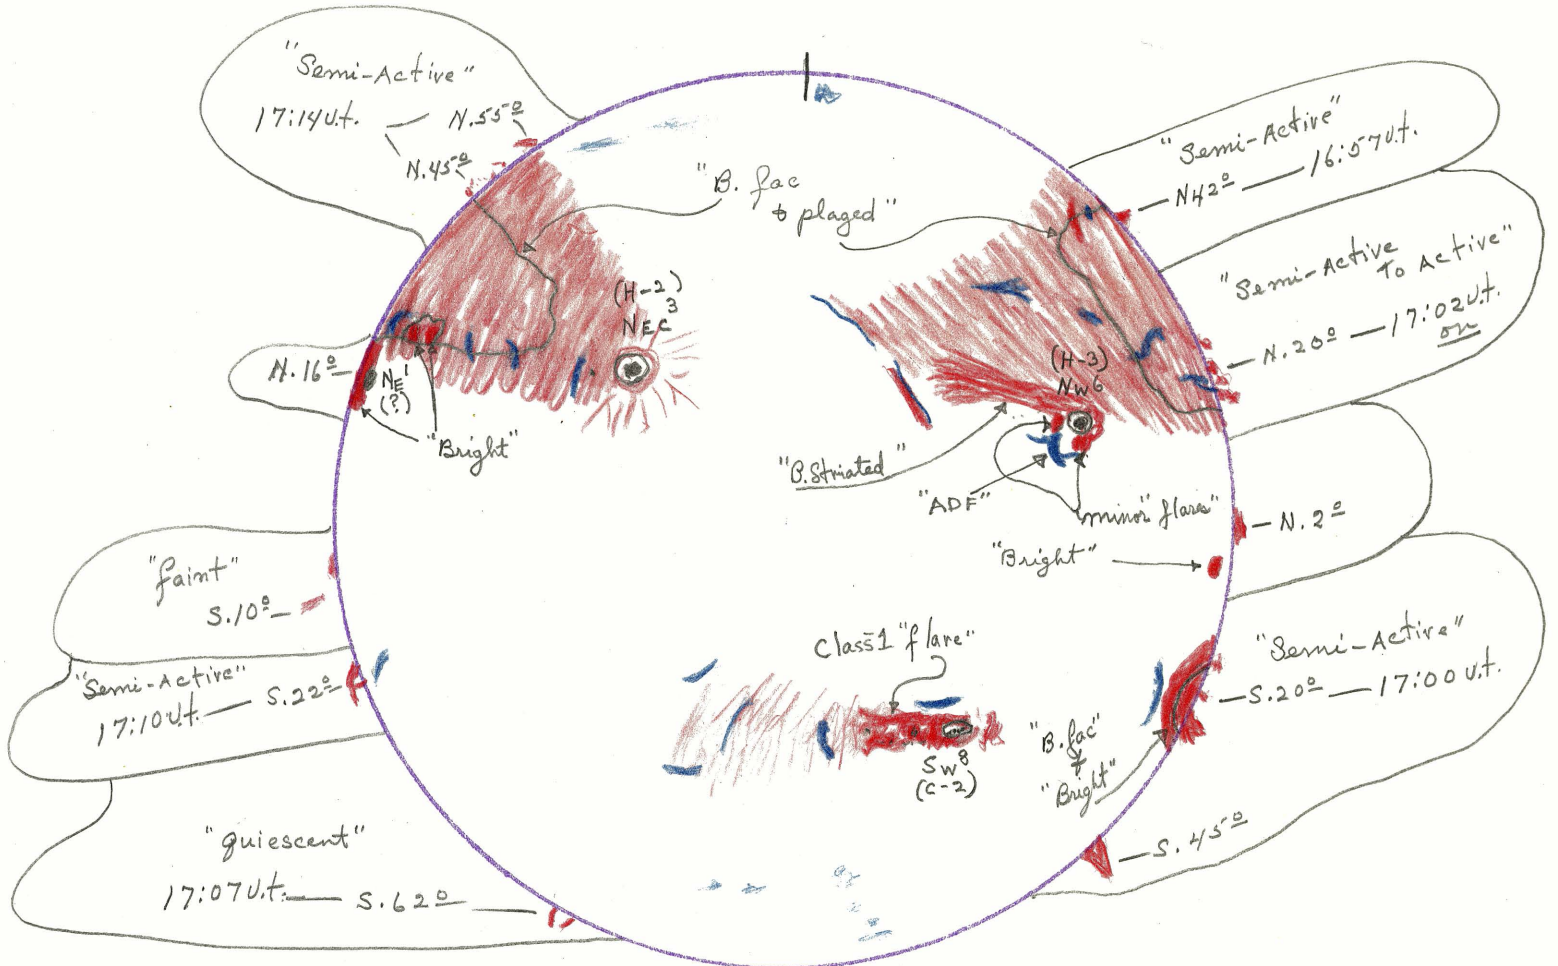 "Semi-Active"
17:14 U.t. — N.55º
N.45º
"B. fac
& plaged"
"Semi-Active"
N42º — 16:57 U.t.
"Semi-Active
To Active"
N.20º — 17:02 U.t.
on
(H-2)
3
NEC
(H-3)
NW6
N.16º
NE1
(?)
"Bright"
"B.Striated"
"ADF"
minor "flares"
N.2º
"Bright"
"faint"
S.10º
"Semi-Active"
17:10 U.t. — S.22º
Class 1 "flare"
SW8
(C-2)
"B.fac"
&
"Bright"
"Semi-Active"
S.20º — 17:00 U.t.
S.45º
"quiescent"
17:07 U.t. — S.62º